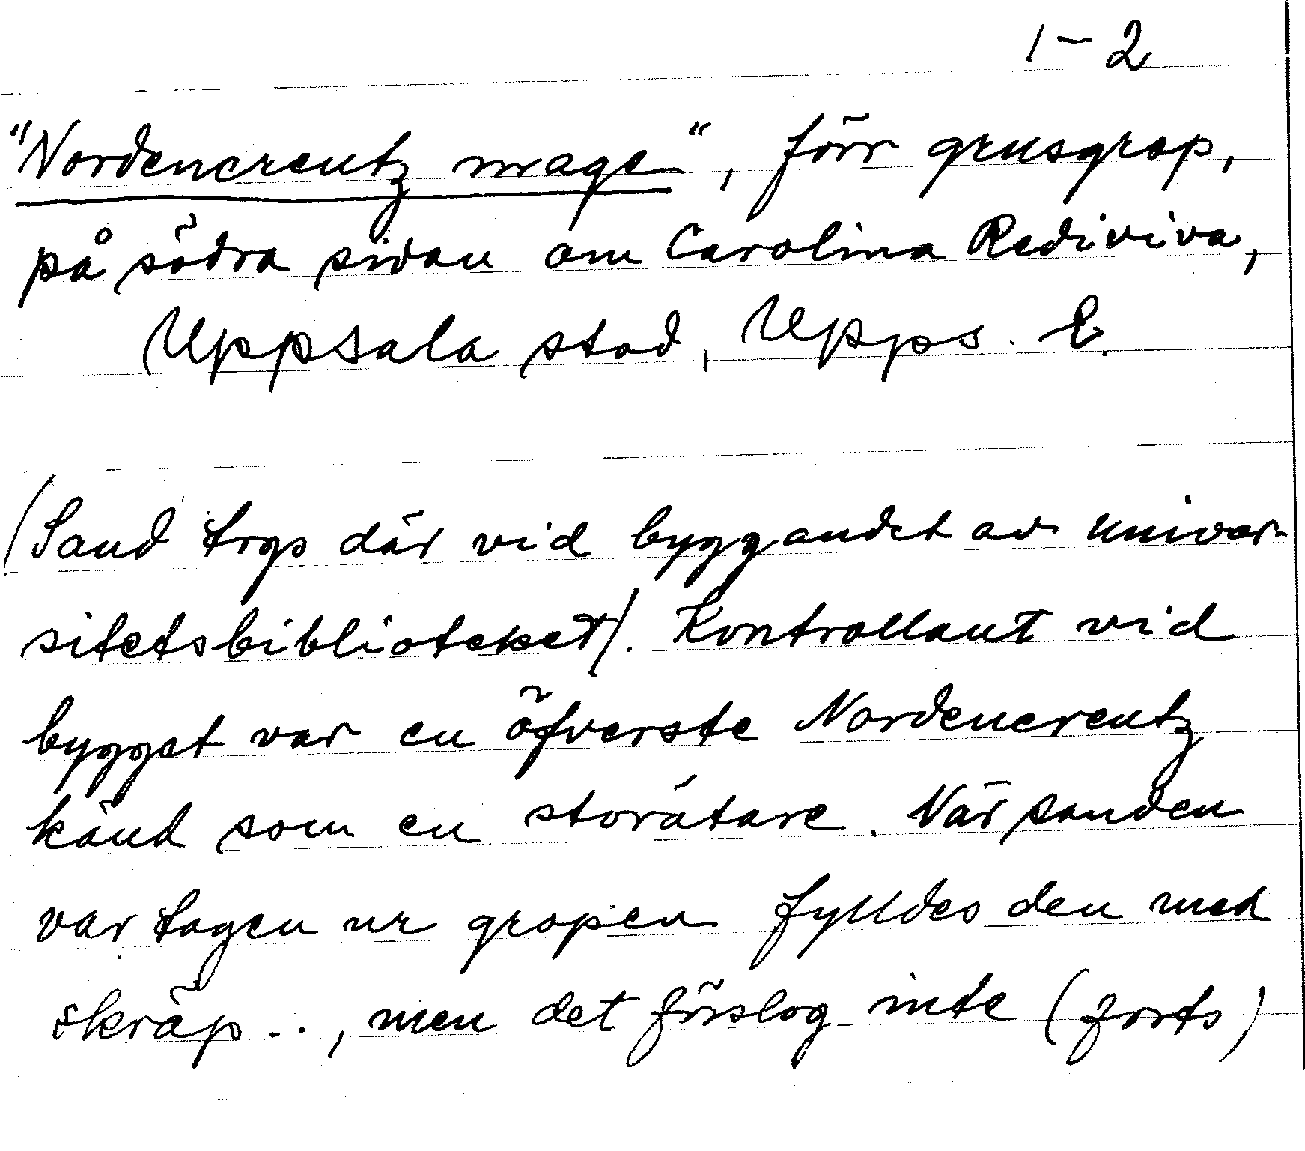 1-2
"Nordencreutz mage", förr grusgrop,
på södra sidan om Carolina Rediviva,
Uppsala stad, Upps. L.
(Sand togs där vid byggandet av univer-
sitetsbiblioteket). Kontrollant vid
bygget var en öfverste Nordencreutz
känd som en storätare. När sanden
var tagen ur gropen fylldes den med
skräp .., men det förslog inte (forts)